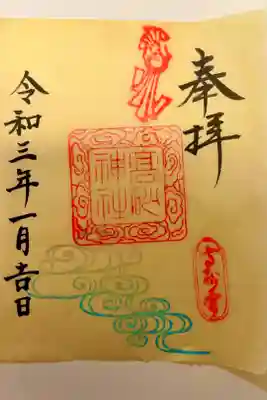 奉拝
神社
令和三年一月吉日